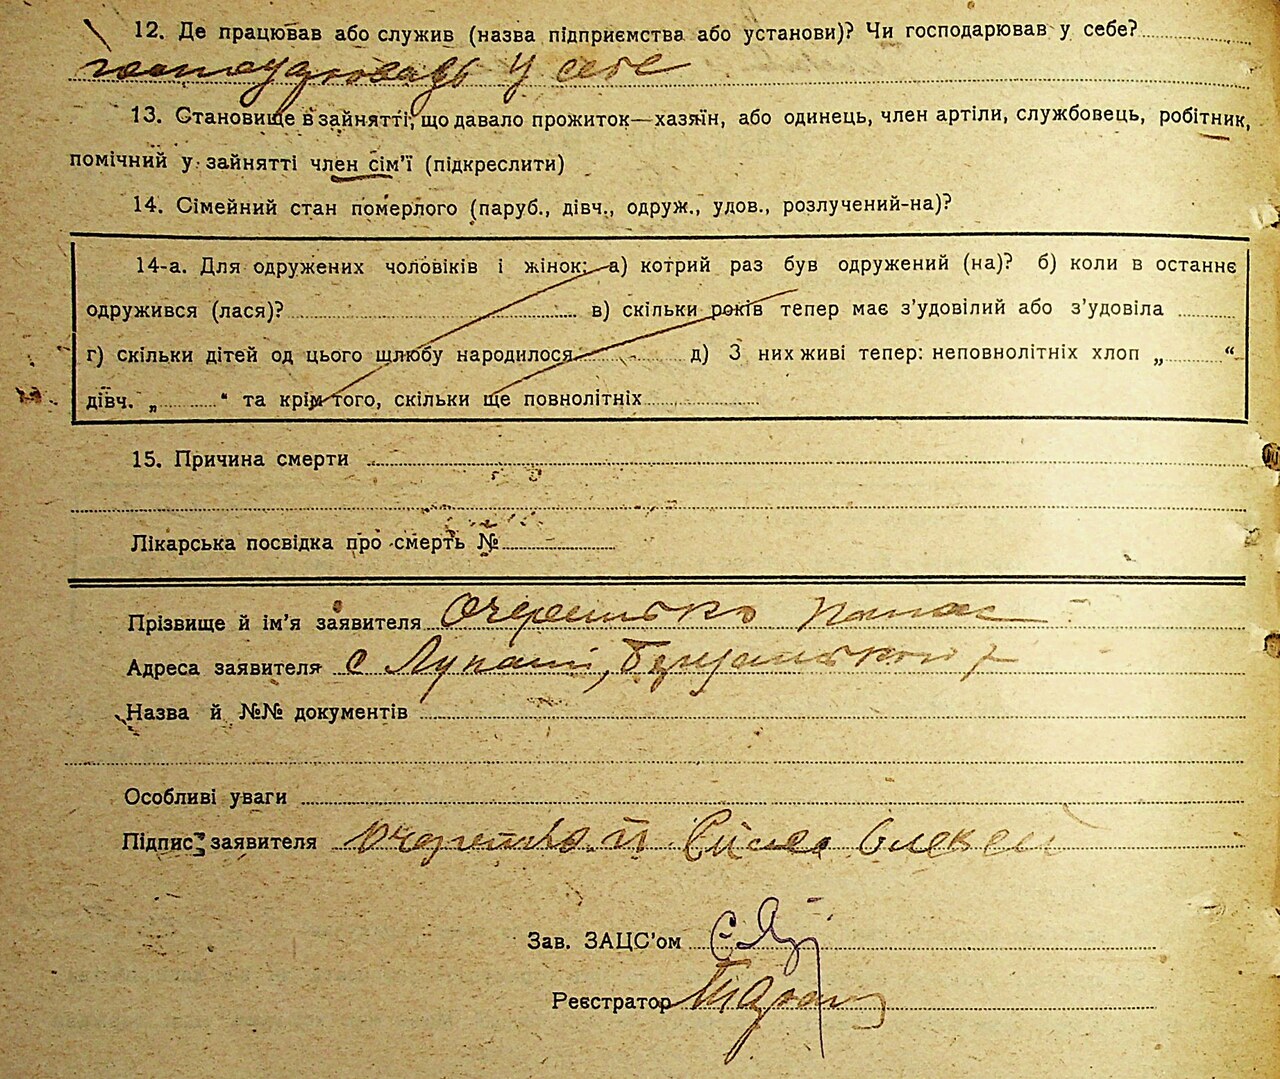 12. Де працював або служив (назва підприємства або установи)? Чи господарював у себе?
господрювавь у себе
13. Становище в зайнятті, що давало прожиток—хазяїн, або одинець, член артіли, службовець, робітник,
помічний у зайнятті член сім'ї (підкреслити)
14. Сімейний стан померлого (паруб., дівч., одруж., удов., розлучений-на)?
14-а. Для одружених чоловіків і жінок: а) котрий раз був одружений (на)? б) коли в останнє
одружився (лася)? в) скільки років тепер має з'удовілий або з'удовіла
г) скільки дітей од цього шлюбу народилося д) З них живі тепер: неповнолітніх хлоп „ “
дівч. „ “ та крім того, скільки ще повнолітніх
15. Причина смерти
Лікарська посвідка про смерть №
Прізвище й ім'я заявителя Очеретько Панас
Адреса заявителя с Лупаші,
Назва й №№ документів
Особливі уваги
Підпис заявителя Олексій
Зав. ЗАЦС'ом
Реєстратор